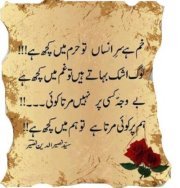 غم ہے سرِ انساں تو حرم میں کچھ ہے!!!
لوگ اشک بہاتے ہیں تو غم میں کچھ ہے
بے وجہ کسی پر نہیں مرتا کوئی ۔۔۔!!
ہم پر کوئی مرتا ہے تو ہم میں کچھ ہے!!
سید نصیر الدین نصیر